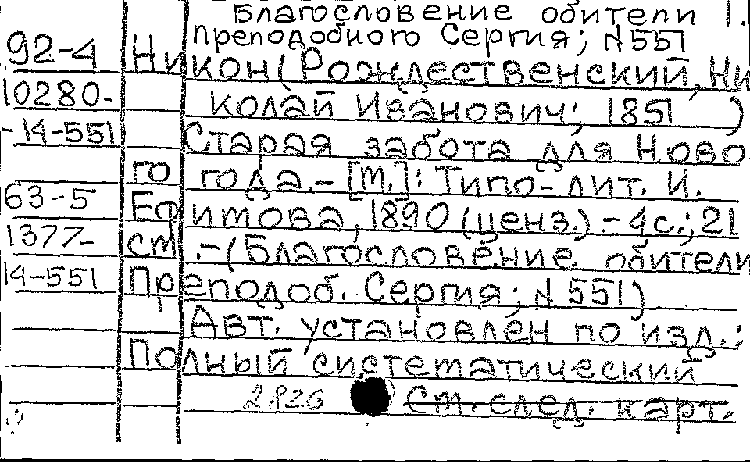 Благословение обители 1.
преподобного Сергия; №551
92-4 Никон (Рождественский, Ни
10280- колай Иванович; 1851 )
-14-551 Старая забота для Ново
го года. – [М.]: Типо-лит. И.
63-5 Ефимова, 1890 (ценз.) – 4с.; 21
1377- см. – (Благословение обители
14-551 Преподоб. Сергия; №551)
Авт. установлен по изд.:
Полный систематический
2826 См. след. карт.